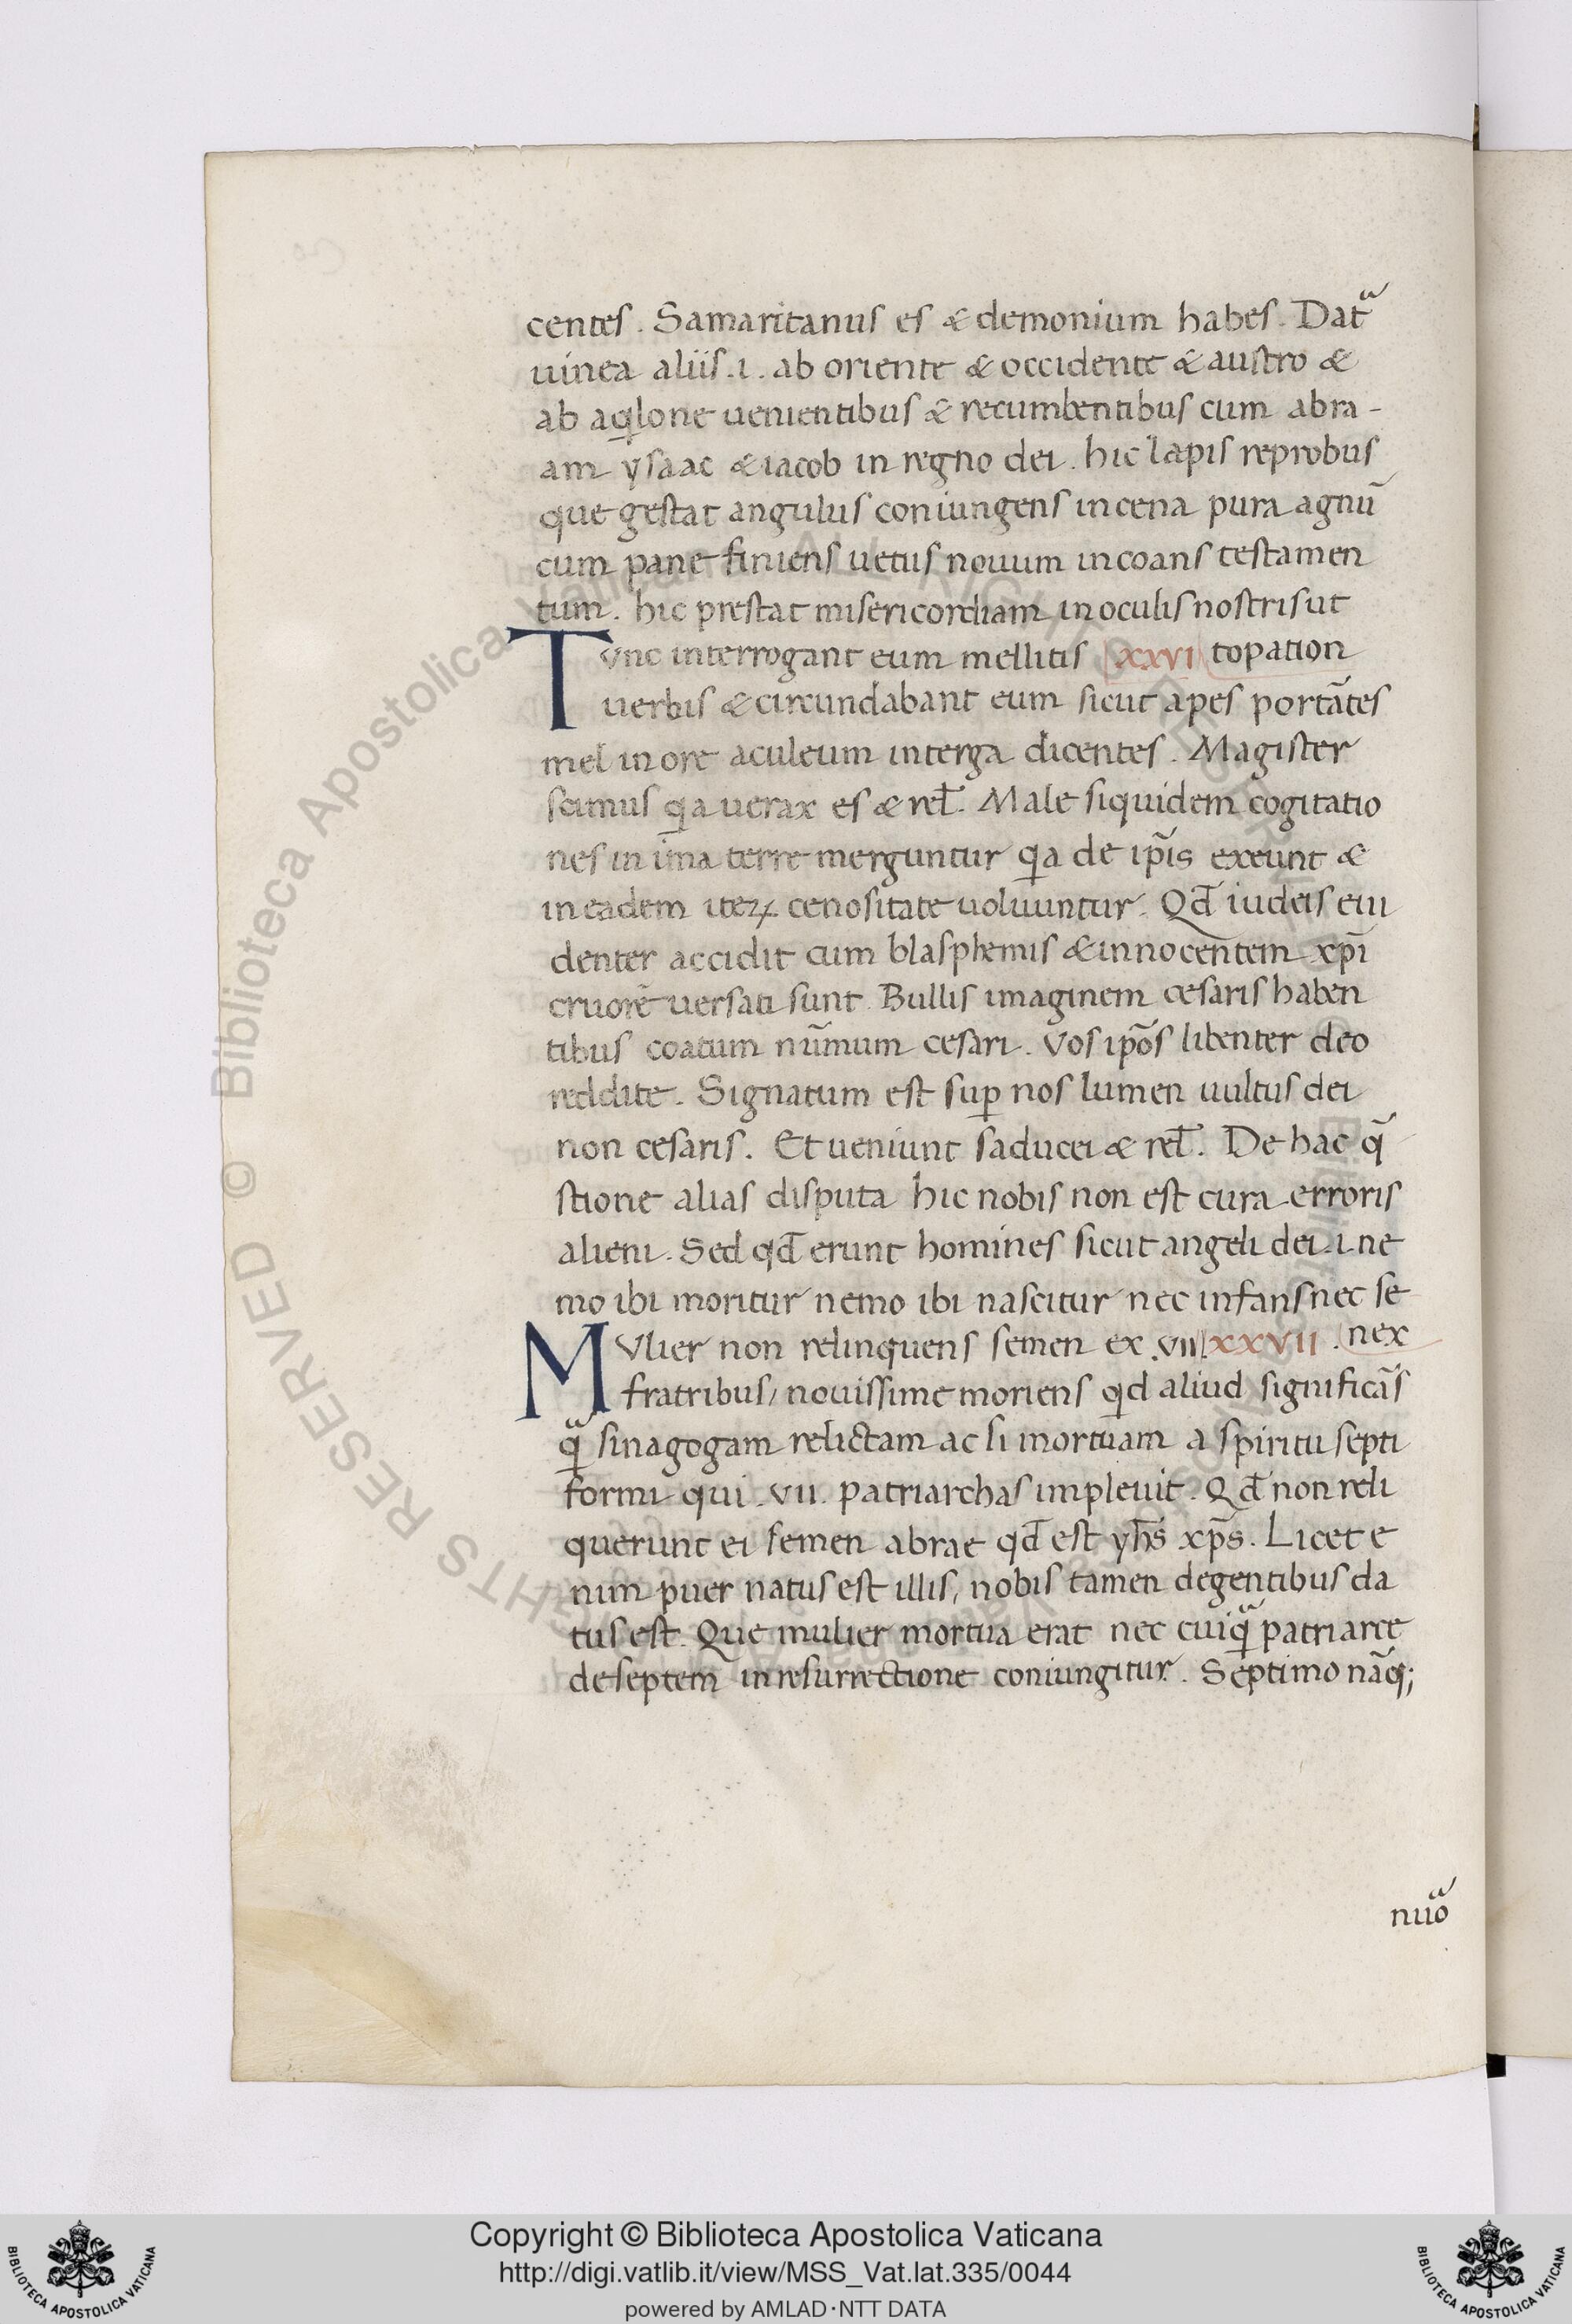 centes. Samaritanus es & demonium habes. Datᷓ
uinea aliis .i. ab oriente & occidente & austro &
ab aqilone uenientibus & recumbentibus cum abra-
am ysaac & iacob in regno dei. hic lapis reprobus
que gestat angulus coniungens in cena pura agnū
cum pane finiens uetus nouum incoans testamen
tum. hic prestat misericordiam in oculis nostris ut
Tunc interrogant eum mellitis XXVI topation
uerbis & circundabant eum sicut apes portātes
mel in ore aculeum in terga dicentes. Magister
scimus qia uerax es & rel̄. Male siquidem cogitatio
nes in ima terre merguntur qia de ip̄is exeunt &
in eadem iteꝝ cenositate uoluuntur. Qd̄ iudeis eui
denter accidit cum blasphemis & innocentem xp̄i
cruorē uersati sunt. Bullis imaginem cesaris haben
tibus coatum nūmum cesari. Vos ip̄os libenter deo
reddite. Signatum est suꝑ nos lumen uultus dei
non cesaris. Et ueniunt saducei & rel̄. De hac q̄
stione alias disputa hic nobis non est cura erroris
alieni. Sed qd̄ erunt homines sicut angeli dei .i. ne
mo ibi moritur nemo ibi nascitur nec infans nec se
Mulier non relinquens semen ex .VII XXVII. nex
fratribus, nouissime moriens qid aliud significās
qᷓ sinagogam relictam ac si mortuam a spiritu septi
formi qui .VII. patriarchas impleuit. Qd̄ non reli
querunt ei semen abrae qd̄ est yh̄s xp̄s. Licet e
nim puer natus est illis, nobis tamen degentibus da
tus est. Que mulier mortua erat nec cuiqᷓ patriarce
de septem in resurrectione coniungitur. Septimo nāq;
nuoᷓ
Copyright © Biblioteca Apostolica Vaticana
http://digi.vatlib.it/view/MSS_Vat.lat.335/0044
powered by AMLAD·NTT DATA
BIBLIOTECA APOSTOLICA VATICANA
BIBLIOTECA APOSTOLICA VATICANA